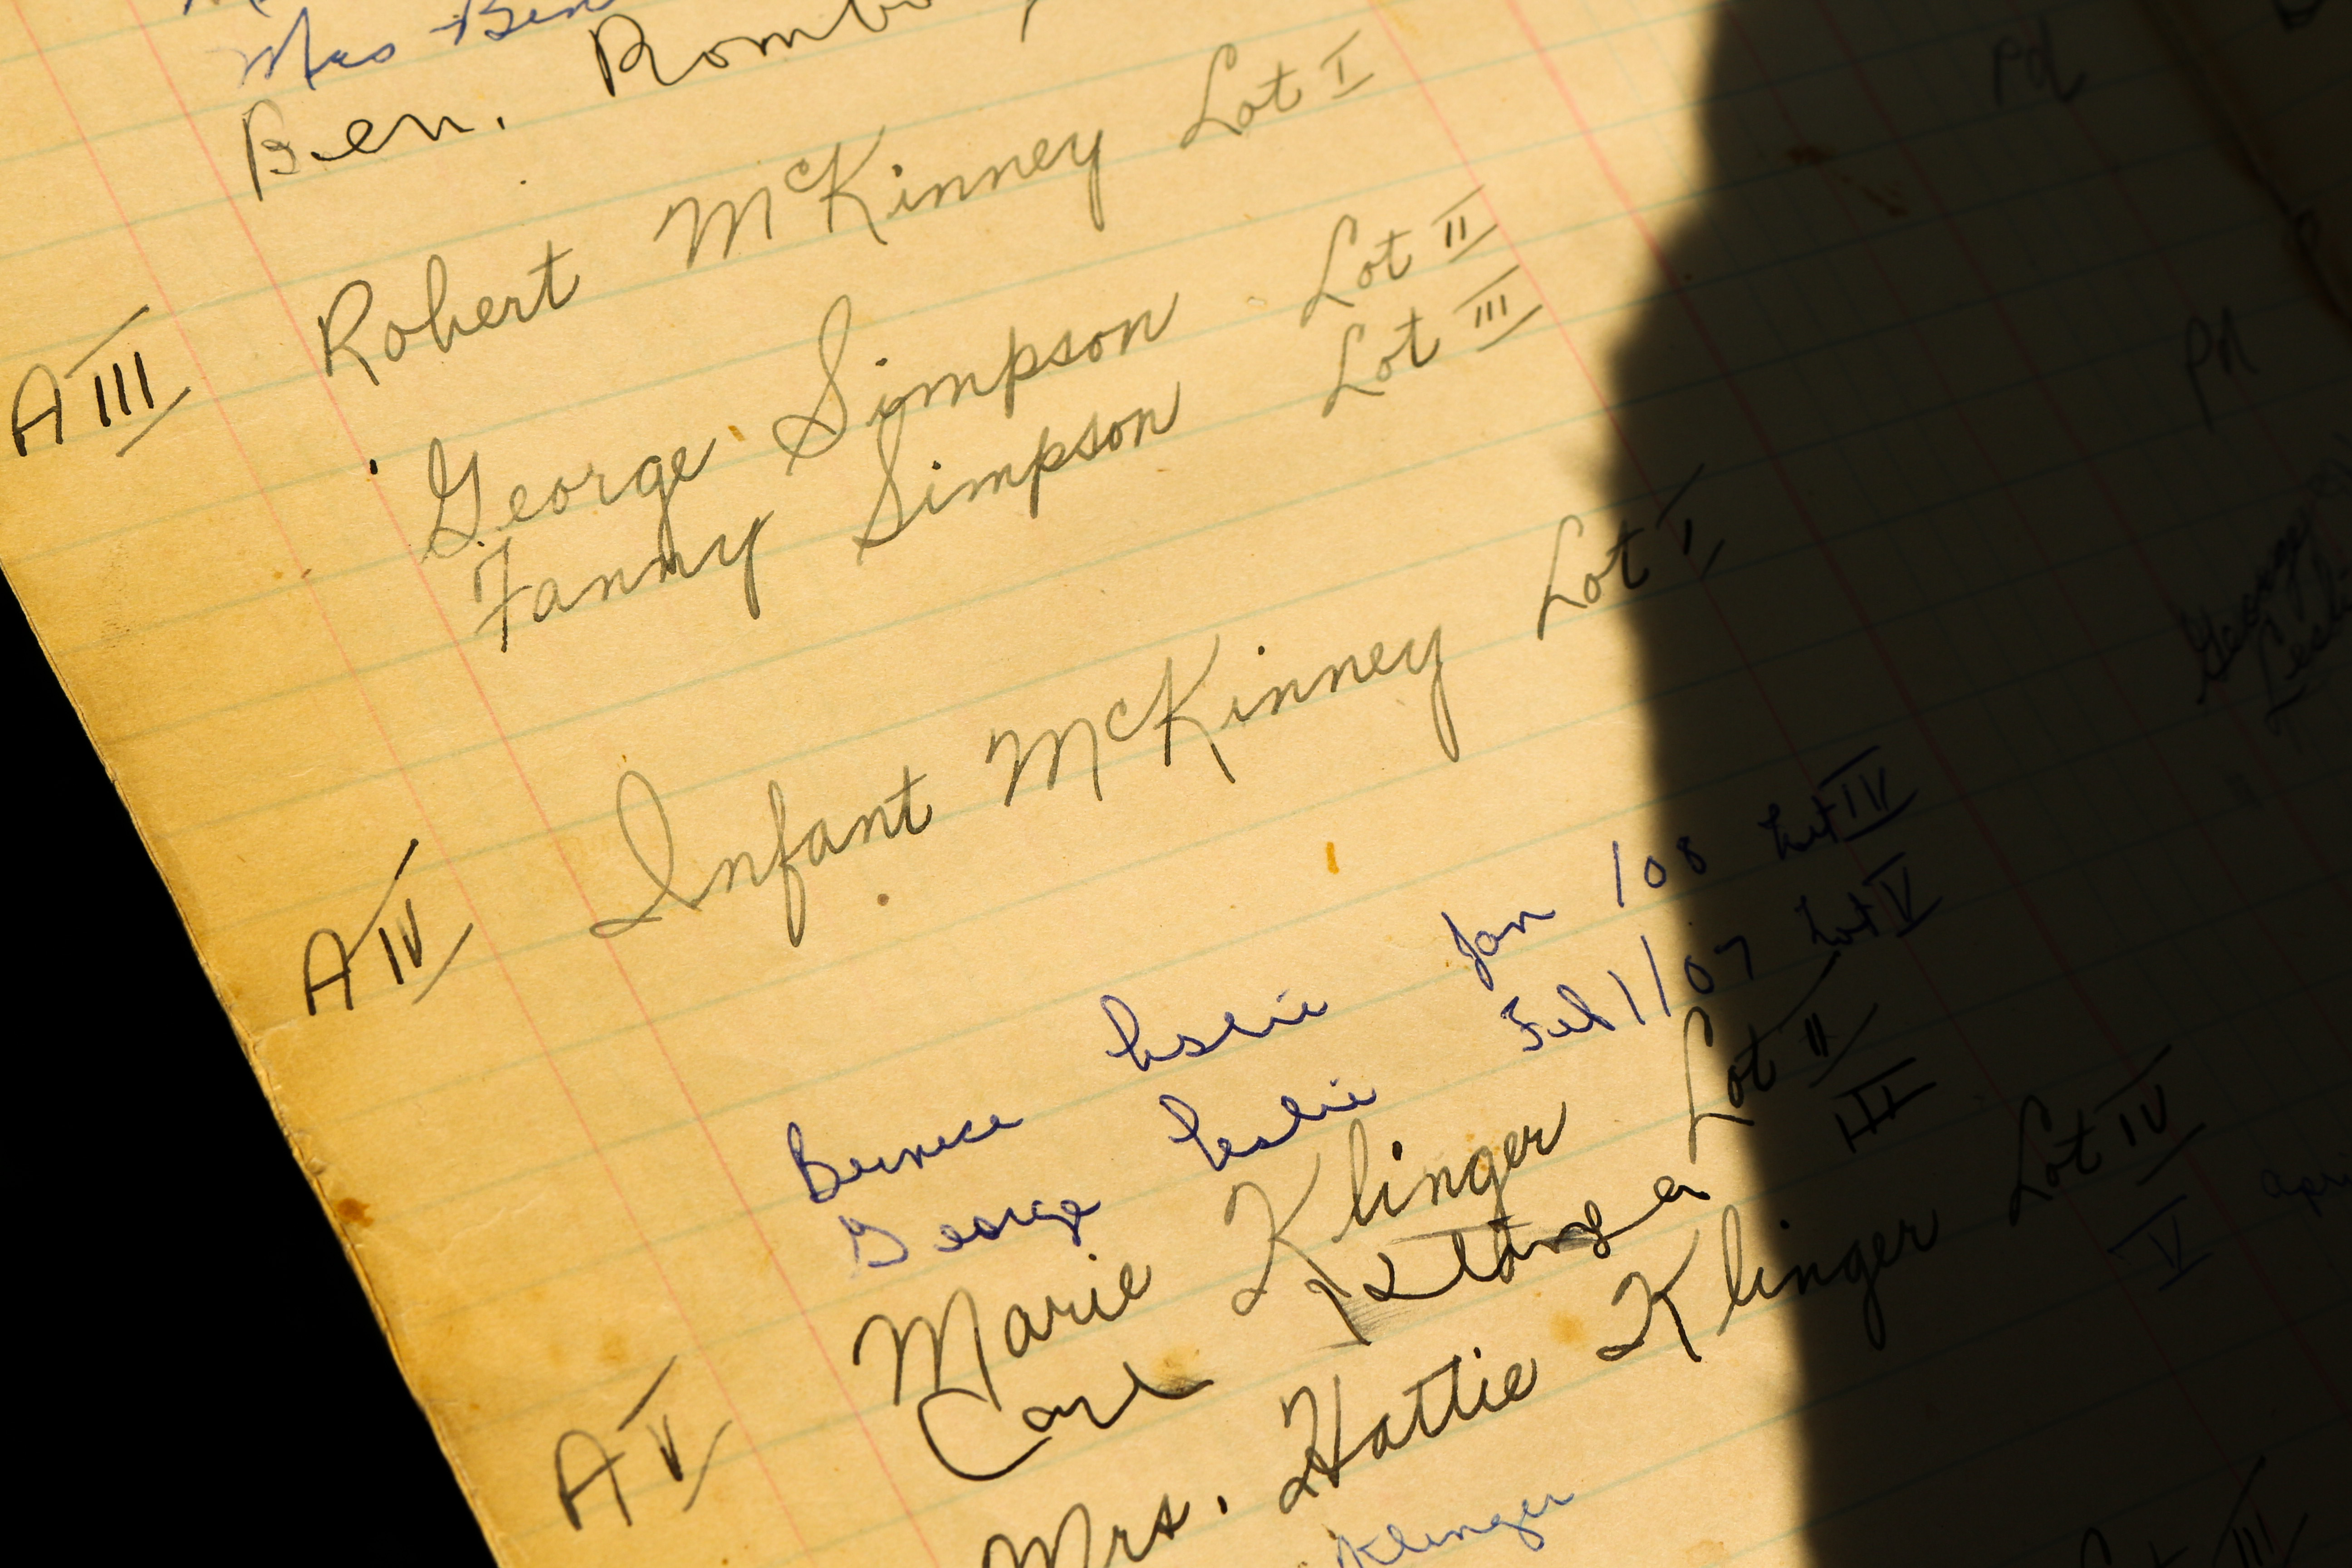 Mrs Ben
Ben. Rombo
A III Robert McKinney Lot I
George Simpson Lot II
Fanny Simpson Lot III
A IV Infant McKinney Lot I
Bernece Leslie Jan 108 Lot IV
George Leslie Feb 1/07 Lot V
A V Marie Klinger Lot II
Carl Klinger III
Mrs. Hattie Klinger Lot IV
V
Klinger
Pd
Pd
George
Lot III